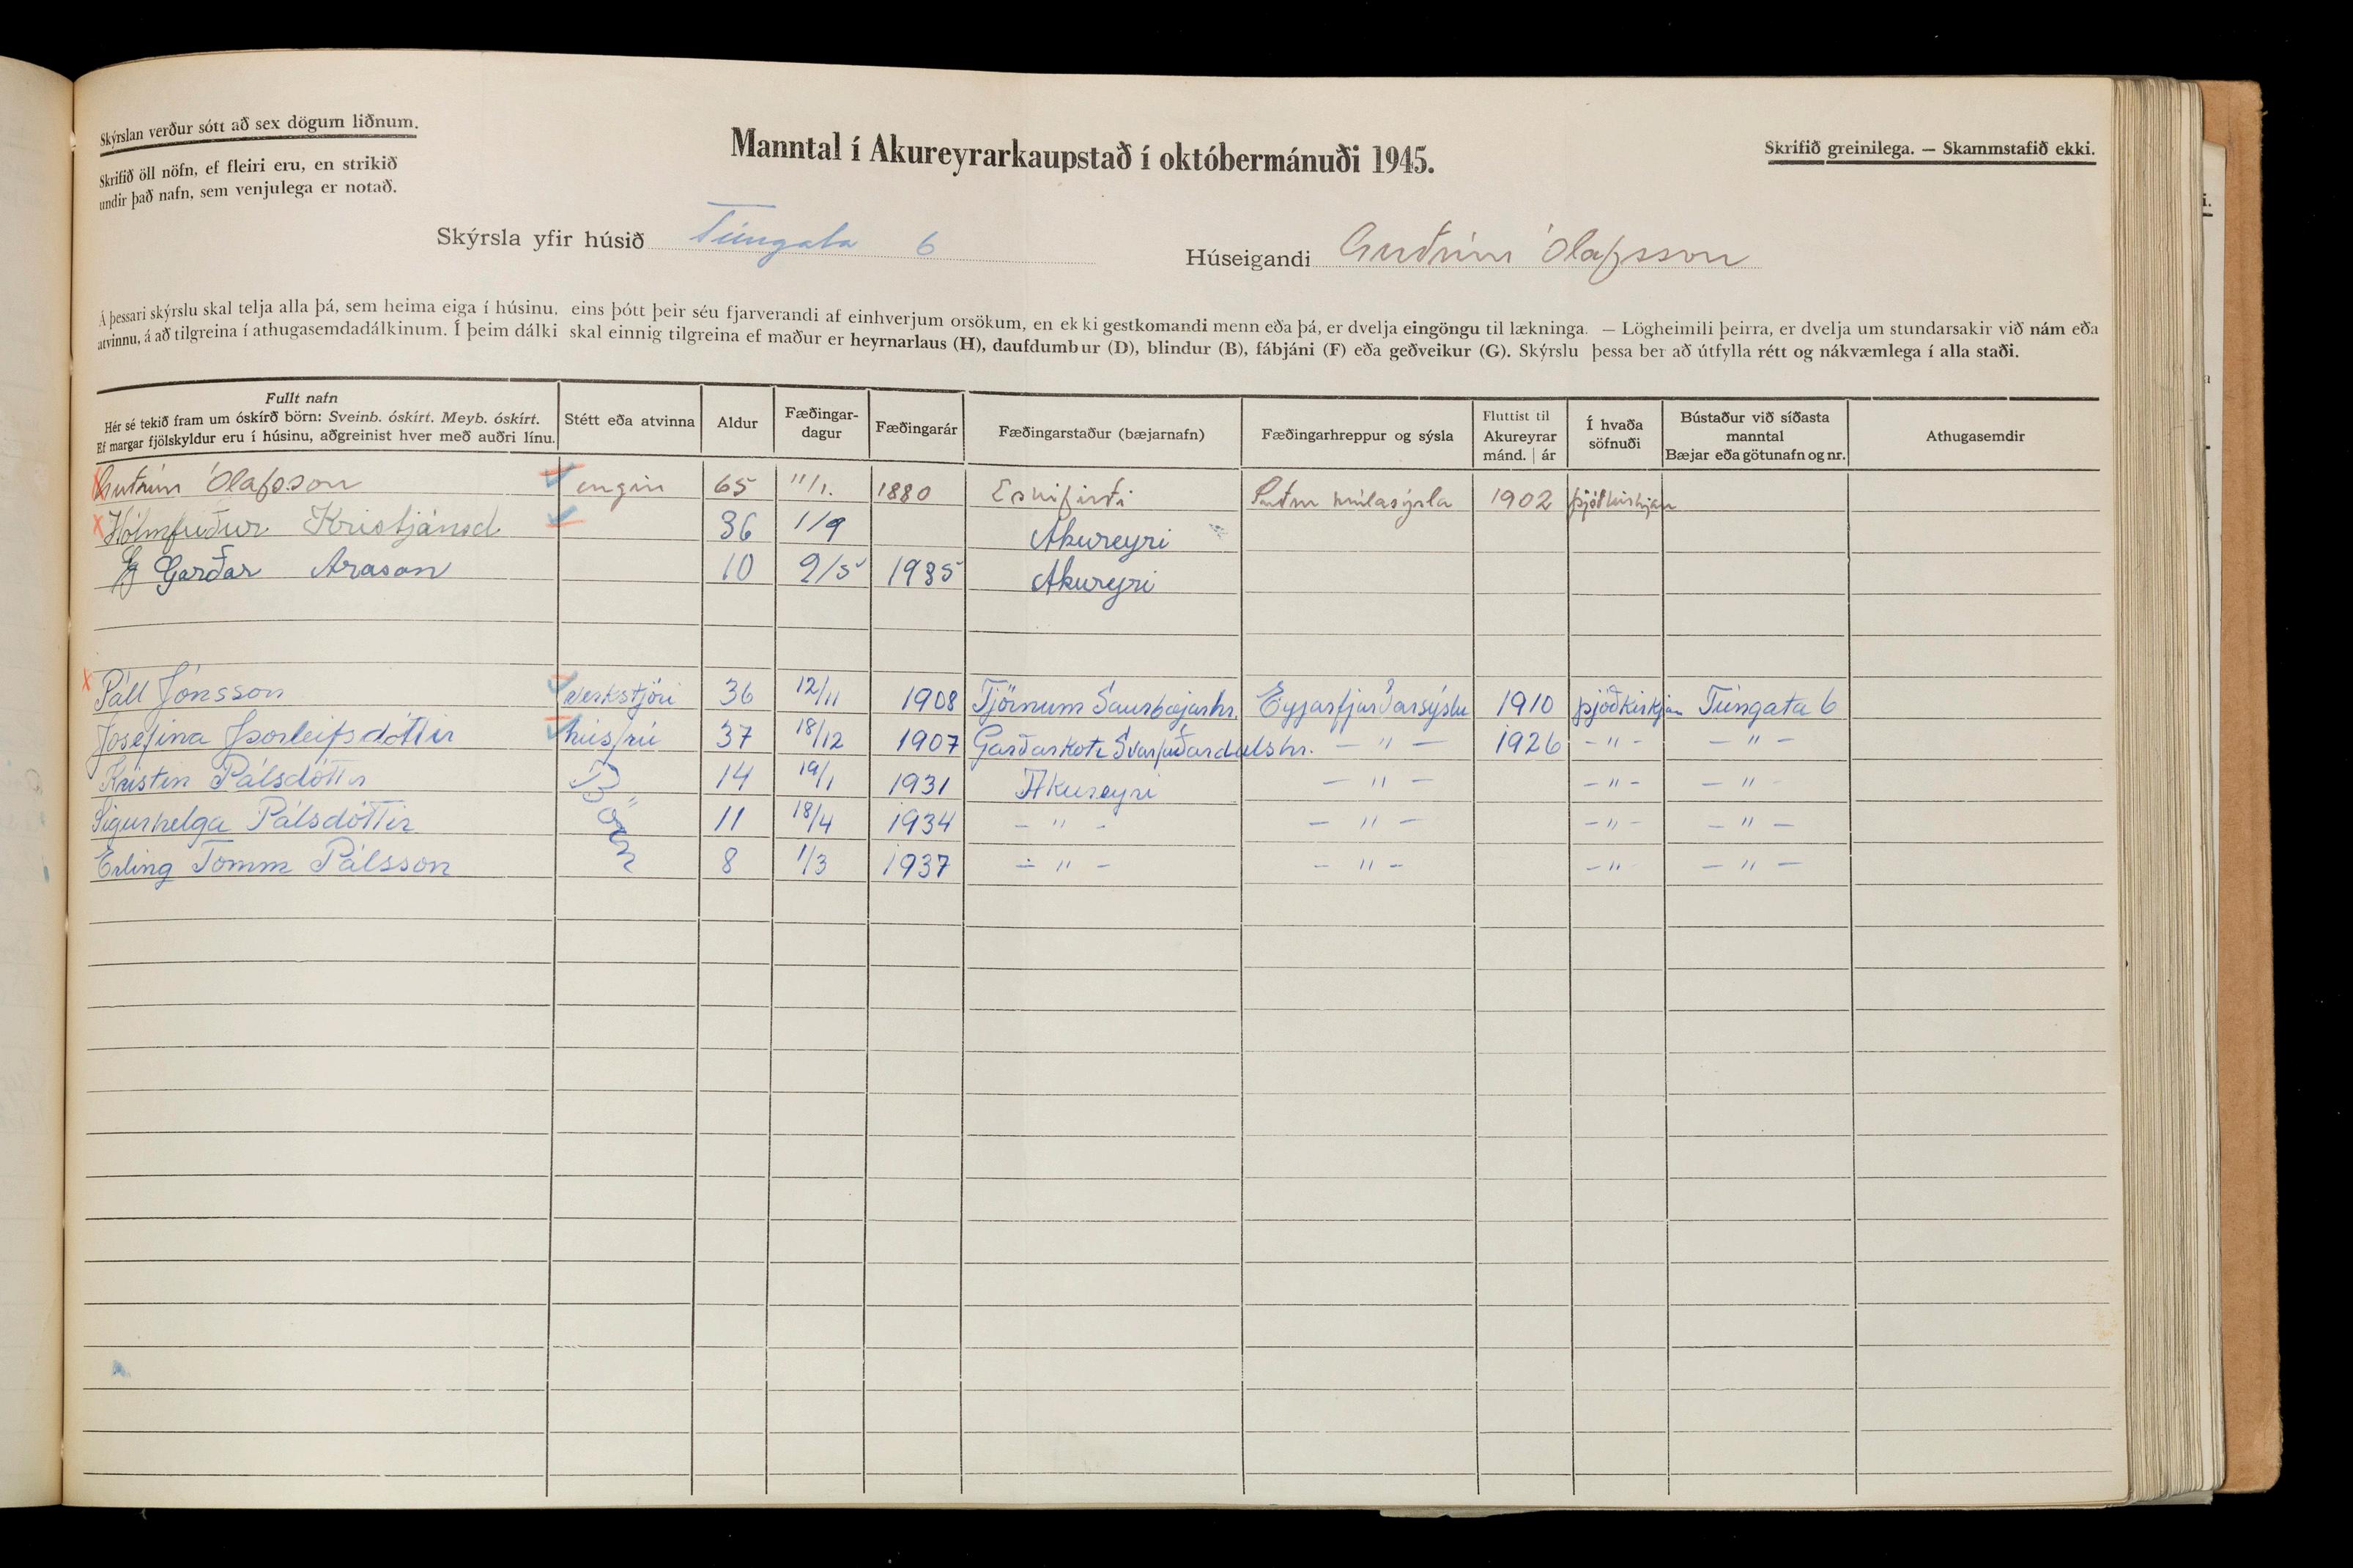 Skýrslan verður sótt að sex dögum liðnum.
Skrifið öll nöfn, ef fleiri eru, en strikið
undir það nafn, sem venjulega er notað.
Manntal í Akureyrarkaupstað í októbermánuði 1945.
Skrifið greinilega. — Skammstafið ekki.
Skýrsla yfir húsið Túngata 6
Húseigandi Guðrún Ólafsson
Á þessari skýrslu skal telja alla þá, sem heima eiga í húsinu, eins þótt þeir séu fjarverandi af einhverjum orsökum, en ekki gestkomandi menn eða þá, er dvelja eingöngu til lækninga. — Lögheimili þeirra, er dvelja um stundarsakir við nám eða
atvinnu, á að tilgreina í athugasemdadálkinum. Í þeim dálki skal einnig tilgreina ef maður er heyrnarlaus (H), daufdumbur (D), blindur (B), fábjáni (F) eða geðveikur (G). Skýrslu þessa ber að útfylla rétt og nákvæmlega í alla staði.
Fullt nafn
Hér sé tekið fram um óskírð börn: Sveinb. óskírt. Meyb. óskírt.
Ef margar fjölskyldur eru í húsinu, aðgreinist hver með auðri línu.
Stétt eða atvinna
Aldur
Fæðingar-
dagur
Fæðingarár
Fæðingarstaður (bæjarnafn)
Fæðingarhreppur og sýsla
Fluttist til
Akureyrar
mánd. | ár
Í hvaða
söfnuði
Bústaður við síðasta
manntal
Bæjar eða götunafn og nr.
Athugasemdir
Guðrún Ólafsson engin 65 11/1. 1880 Eskifirði Suður múlasýsla 1902 þjóðkirkjan
Hólmfriður Kristjánsd 36 1/9 Akureyri
Garðar Arason 10 9/5 1935 Akureyri
Páll Jónsson verkstjóri 36 12/11 1908 Tjörnum Saurbæjarhr. Eyjarfjarðarsýslu 1910 þjóðkirkjan Túngata 6
Jósefína Þorleifsdóttir húsfrú 37 18/12 1907 Garðarkoti Svarfaðardalshr. — " — 1926 - " - — " —
Kristín Pálsdóttir Börn 14 19/1 1931 Akureyri — " — — " - — "
Sigurhelga Pálsdóttir 11 18/4 1934 — " - — " — — " - — " —
Erling Tomm Pálsson 8 1/3 1937 — " - — " - — " — " —